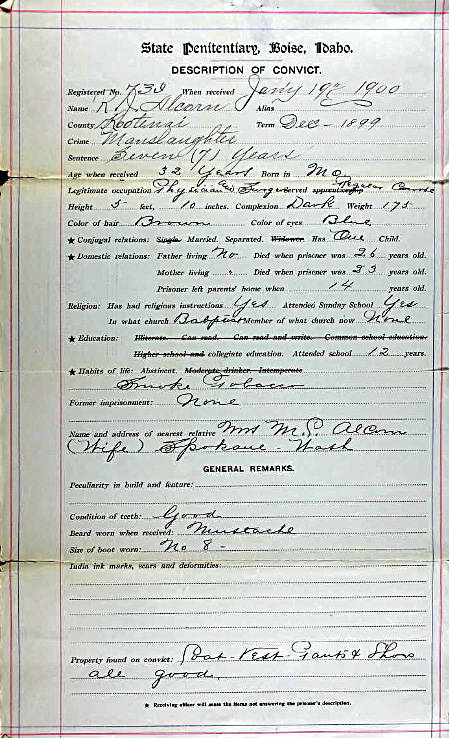 State Penitentiary, Boise, Idaho.
DESCRIPTION OF CONVICT.
Registered No. 732 When received Jan'y 19th 1900
Name R J Alcorn Alias
County Kootenai Term Dec - 1899
Crime Manslaughter
Sentence Seven (7) Years
Age when received 32 Years Born in Mo
Legitimate occupation Physician and Surgeon Served apprenticeship Regular Course
Height 5 feet, 10 inches. Complexion Dark Weight 175
Color of hair Brown Color of eyes Blue
★ Conjugal relations: Single. Married. Separated. Widower. Has One Child.
★ Domestic relations: Father living No Died when prisoner was 26 years old.
Mother living " Died when prisoner was 23 years old.
Prisoner left parents' home when 14 years old.
Religion: Has had religious instructions Yes Attended Sunday School Yes
In what church Babptist Member of what church now None
★ Education: Illiterate. Can read. Can read and write. Common school education.
Higher school and collegiate education. Attended school 12 years.
★ Habits of life: Abstinent. Moderate drinker. Intemperate
Smoke Tobacco
Former imprisonment: None
Name and address of nearest relative Mrs M. S. Alcorn
(Wife) Spokane - Wash
GENERAL REMARKS.
Peculiarity in build and feature:
Condition of teeth: Good
Beard worn when received: Mustache
Size of boot worn: No 8 -
India ink marks, scars and deformities:
Property found on convict: Coat - Vest - Pants & Shoes
all good.
★ Receiving officer will erase the items not answering the prisoner's description.